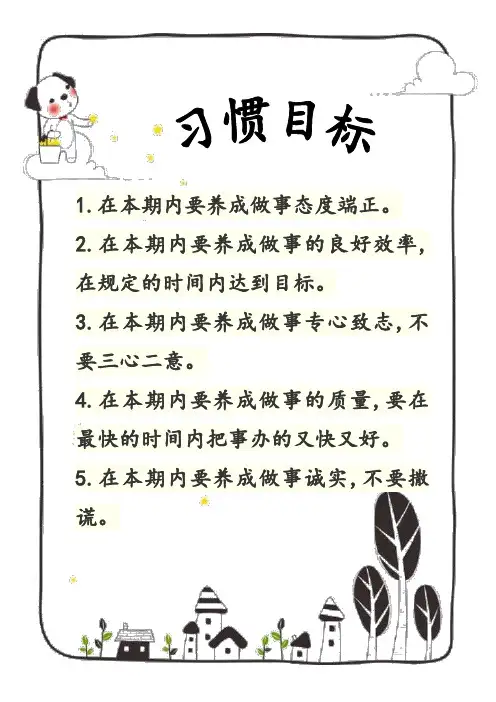 习惯目标
1.在本期内要养成做事态度端正。
2.在本期内要养成做事的良好效率,
在规定的时间内达到目标。
3.在本期内要养成做事专心致志,不
要三心二意。
4.在本期内要养成做事的质量,要在
最快的时间内把事办的又快又好。
5.在本期内要养成做事诚实,不要撒
谎。